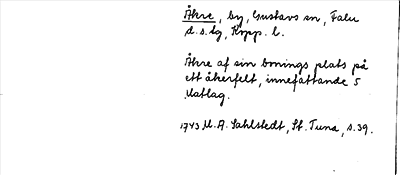 Åkre, by, Gustavs sn, Falu
d.s.lg, Kopp. l.
Åkre af sin bonings plats på
ett åkerfelt, innefattande 5
Matlag.
1743 M.A. Sahlstedt, St. Tuna, s.39.